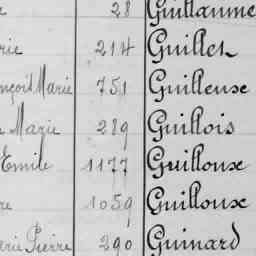 28 Guillaume
rie 214 Guillet
nçois Marie 751 Guilleuse
e Marie 289 Guillois
Emile 1177 Guilloux
re 1059 Guilloux
arie Pierre 290 Guinard